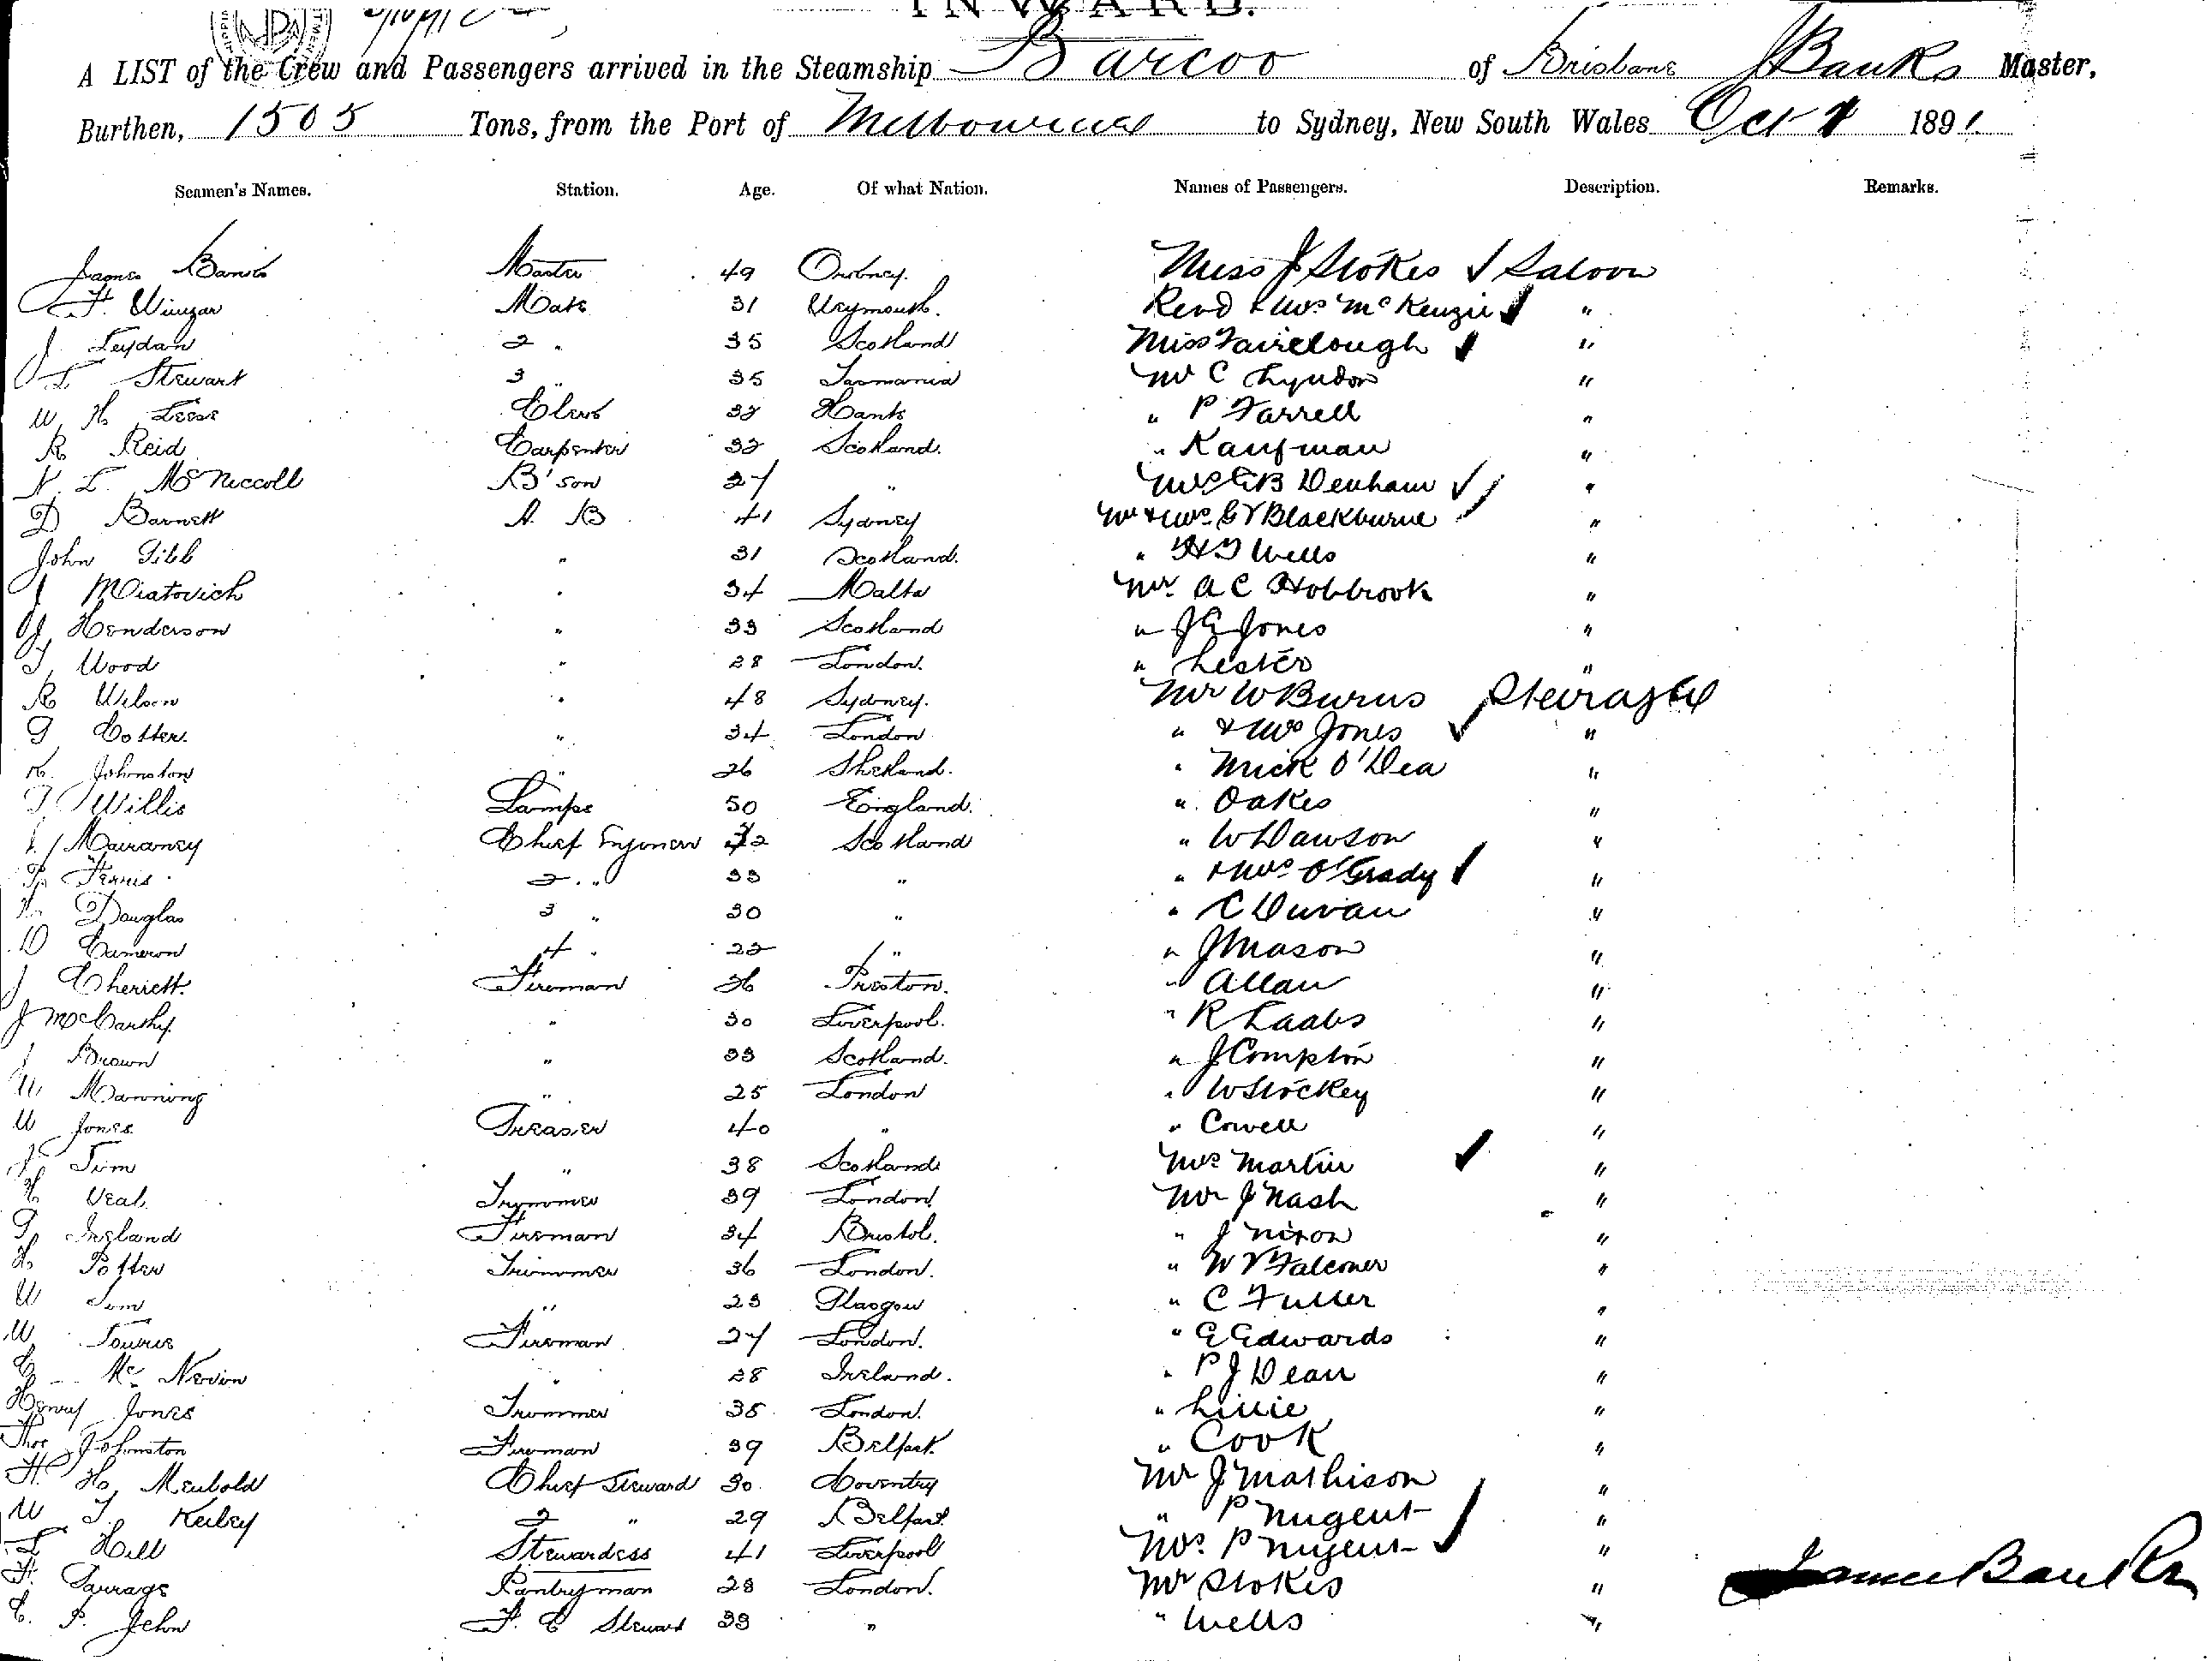 INWARD.
A LIST of the Crew and Passengers arrived in the Steamship Barcoo of Brisbane J Banks Master,
Burthen, 1505 Tons, from the Port of Melbourne to Sydney, New South Wales Oct 1 1891.
Seamen's Names. Station. Age. Of what Nation. Names of Passengers. Description. Remarks.
James Banks Master 49 Orkney. Miss J Stokes ✓ Saloon
F. Mate 31 Weymouth. Revd & Mrs McKenzie ✓ "
J Leydan 2 " 35 Scotland Miss Fairclough ✓ "
L Stewart 3 " 35 Tasmania Mr C Lyndon "
W. H. Leese Clerk 32 Hants " P Farrell "
R Reid Carpenter 32 Scotland. " Kaufman "
N. L. McNiccoll B'son 27 " Mrs G B Denham ✓ "
D Barnett A. B 41 Sydney Mr & Mrs G Y Blackburne ✓ "
John Gibb " 31 Scotland. " H J Wells "
J Miatovich " 34 Malta Mr. A C Holbrook "
J. Henderson " 33 Scotland " J G Jones "
T. Wood " 28 London. " Lester "
R Wilson " 48 Sydney. Mr W Burns Steerage
G Cotter. " 34 London " & Mrs Jones ✓ "
R. Johnston " 26 Shetland. " Mick O'Dea "
T Willis Lamps 50 England. " Oakes "
J Mairaney Chief Engineer 42 Scotland " W Dawson "
P. Ferris 2 " 33 " " & Mrs O'Grady ✓ "
Douglas 3 " 30 " " C Duvau "
D Cameron 4 " 22 " " J Mason "
J Cheriett. Fireman 36 Preston. " Allan "
J McCarthy. " 30 Liverpool. " R Laabs "
J Brown " 33 Scotland. " J Compton "
W. Manning " 25 London " W Stockey "
W Jones Greaser 40 " " Cowell "
J. Sim " 38 Scotland Mrs Martin ✓ "
H Veal. Trimmer 39 London Mr J Nash "
G. Ireland Fireman 34 Bristol. " J Nixon "
H. Potter Trimmer 36 London. " W V Falconer "
W Sim " 23 Glasgow " C Fuller "
W Fireman 27 London. " G Edwards "
C McNevin " 28 Ireland. " P J Dean "
Henry Jones Trimmer 35 London. " "
Thos Johnston Fireman 39 Belfast. " Cook "
H. H. Meubold Chief Steward 30. Coventry Mr J Mathison "
W T. Keiley 2 " 29 Belfast. " P Nugent "
L Hill Stewardess 41 Liverpool Mrs. P Nugent ✓ "
F. Garrage Pantryman 28 London. Mr Stokes " James Banks
C. P. John F. C Steward 33 " " Wells "